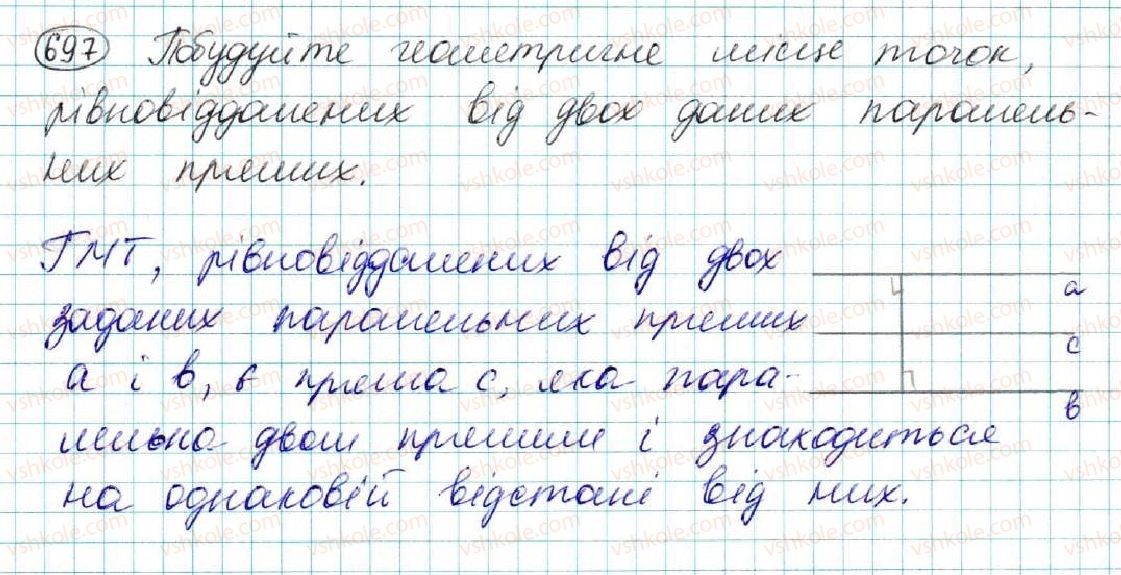 697 Побудуйте геометричне місце точок,
рівновіддалених від двох даних паралель-
них прямих.
ГМТ, рівновіддалених від двох
заданих паралельних прямих
а і в, є пряма с, яка пара-
лельна двом прямим і знаходиться
на однаковій відстані від них.
а
с
в
vshkole.com